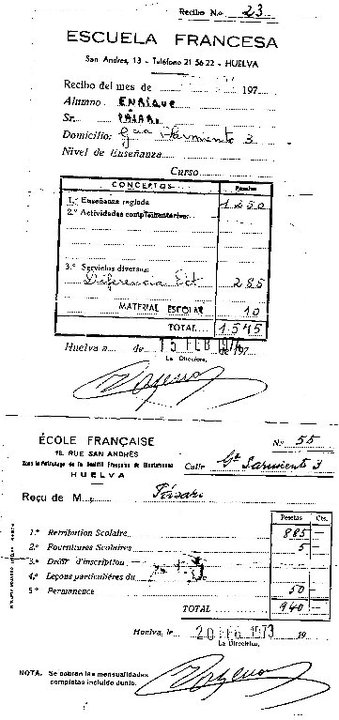 Recibo N.º 23
ESCUELA FRANCESA
San Andrés, 13 - Teléfono 21 56 22 - HUELVA
Recibo del mes de 197
Alumno ENRIQUE
Sr.
Domicilio: Sarmiento 3
Nivel de Enseñanza
Curso
CONCEPTOS Pesetas
1.º Enseñanza reglada 1.250
2.º Actividades complementarias:
3.º Servicios diversos:
Diferencia 285
MATERIAL ESCOLAR 10
TOTAL 1.545
Huelva a de 15 FEB 1974 de 197
La Directora,
ÉCOLE FRANÇAISE
13, RUE SAN ANDRÉS
HUELVA
N.º 55
Calle Sarmiento 3
Reçu de M
Pesetas Cts.
1.º Retribution Scolaire 885 —
2.º Fournitures Scolaires 5 —
3.º Droit d'inscription
4.º Leçons particulières du
5.º Permanence 50 —
TOTAL 940 —
Huelva, le 20 FEB 1973 19
La Directrice,
NOTA. Se cobran las mensualidades
completas incluido Junio.